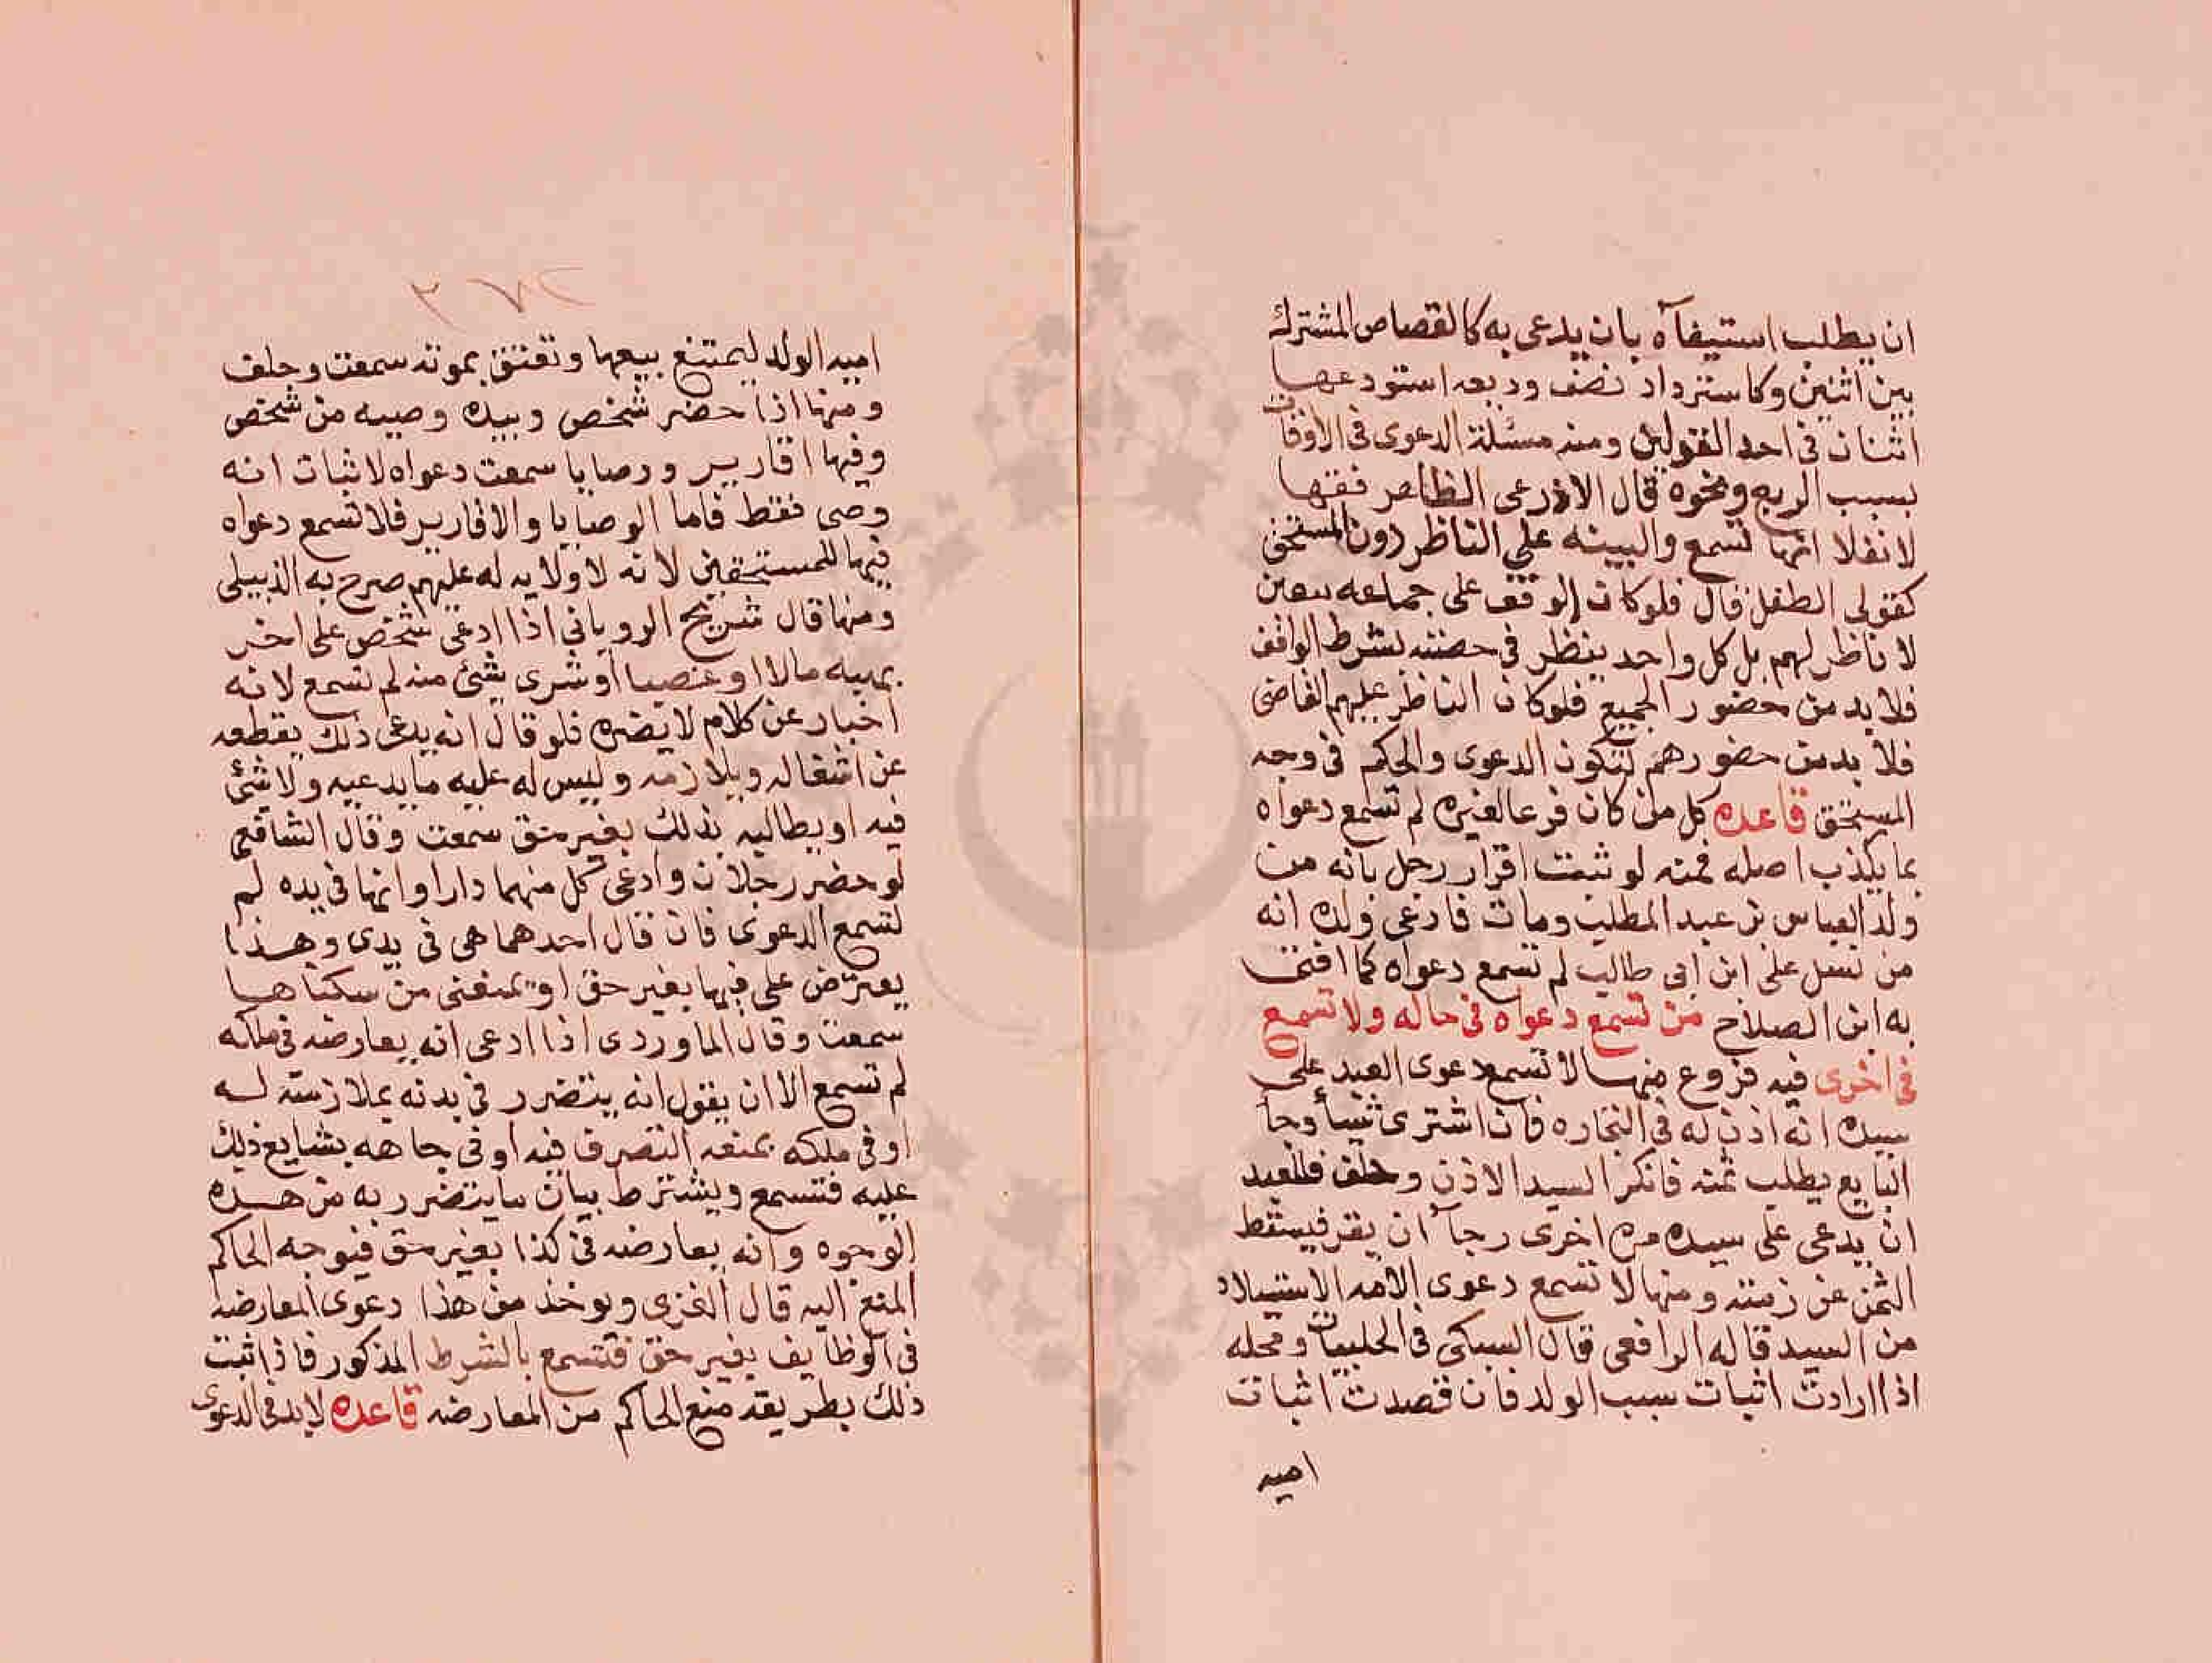 ان يطلب استيفآه بان يدعى به كالقصاص المشترك
بين اثنين وكاسترداد نصف وديعه استودعها
اثنان فى احد القولين ومنه مسئلة الدعوى فى الاوقات
بسبب الريع ونحوه قال الاذرعى الظاهر فقها
لا نقلا انها تسمع والبينه على الناظر دون المستحق
كقولى الطفل قال فلو كان الوقف على جماعه معين
لا ناظر لهم بل كل واحد ينظر فى حصته بشرط الواقف
فلا بد من حضور الجميع فلو كان الناظر عليهم القاضى
فلا بد من حضورهم لتكون الدعوى والحكم فى وجه
المستحق قاعده كل من كان فرعا لغيره لم تسمع دعواه
بما يكذب اصله فمنه لو ثبت اقرار رجل بانه من
ولد العباس بن عبد المطلب ومات فادعى ولده انه
من نسل على ابن ابى طالب لم تسمع دعواه كما افتى
به ابن الصلاح من تسمع دعواه فى حاله ولا تسمع
فى اخرى فيه فروع منها لا تسمع دعوى العبد على
سيده انه اذن له فى التجاره فان اشترى شيأ وجا
البايع يطلب ثمنه فانكر السيد الاذن وحلف فللعبد
ان يدعى على سيده مره اخرى رجآ ان يقر فيسقط
الثمن عن ذمته ومنها لا تسمع دعوى الامه الاستيلاد
من السيد قاله الرافعى قال السبكى فى الحلبيات ومحله
اذا ارادت اثبات سبب الولد فان قصدت اثبات
اميه
٢٧٣
اميه الولد ليمتنع بيعها وتعتق بموته سمعت وحلف
ومنها اذا حضر شخص وبيده وصيه من شخص
وفيها اقارير ورصايا سمعت دعواه لاثبات انه
وصى فقط فاما الوصايا والاقارير فلا تسمع دعواه
فيها للمستحقين لانه لا ولايه له عليهم صرح به الذبيلى
ومنها قال شريح الرويانى اذا ادعى شخص على اخر
بهبيه مالا او غصبا او شرى شئ منه لم تسمع لانه
اخبار عن كلام لا يضره فلو قال انه يدعى ذلك يقطعه
عن اشغاله ويلازمه وليس له عليه ما يدعيه ولا شئ
فيه او يطالبه بذلك بغير حق سمعت وقال الشافعى
لو حضر رجلان وادعى كل منهما دارا وانها فى يده لم
تسمع الدعوى فان قال احدهما هى فى يدى وهذا
يعترض على فيها بغير حق او يمنعنى من سكناها
سمعت وقال الماوردى اذا ادعى انه يعارضه فى ملكه
لم تسمع الا ان يقول انه يتضرر فى بدنه بملازمته له
او فى ملكه بمنعه التصرف فيه او فى جاهه بشايع ذلك
عليه فتسمع ويشترط بيان ما يتضرر به من هذه
الوجوه وانه يعارضه فى كذا بغير حق فيوجه الحاكم
المنع اليه قال الغزى ويوخذ من هذا دعوى المعارضه
فى الوظايف بغير حق فتسمع بالشرط المذكور فاذا ثبت
ذلك بطريقه منع الحاكم من المعارضه قاعده لا بد فى الدعوى